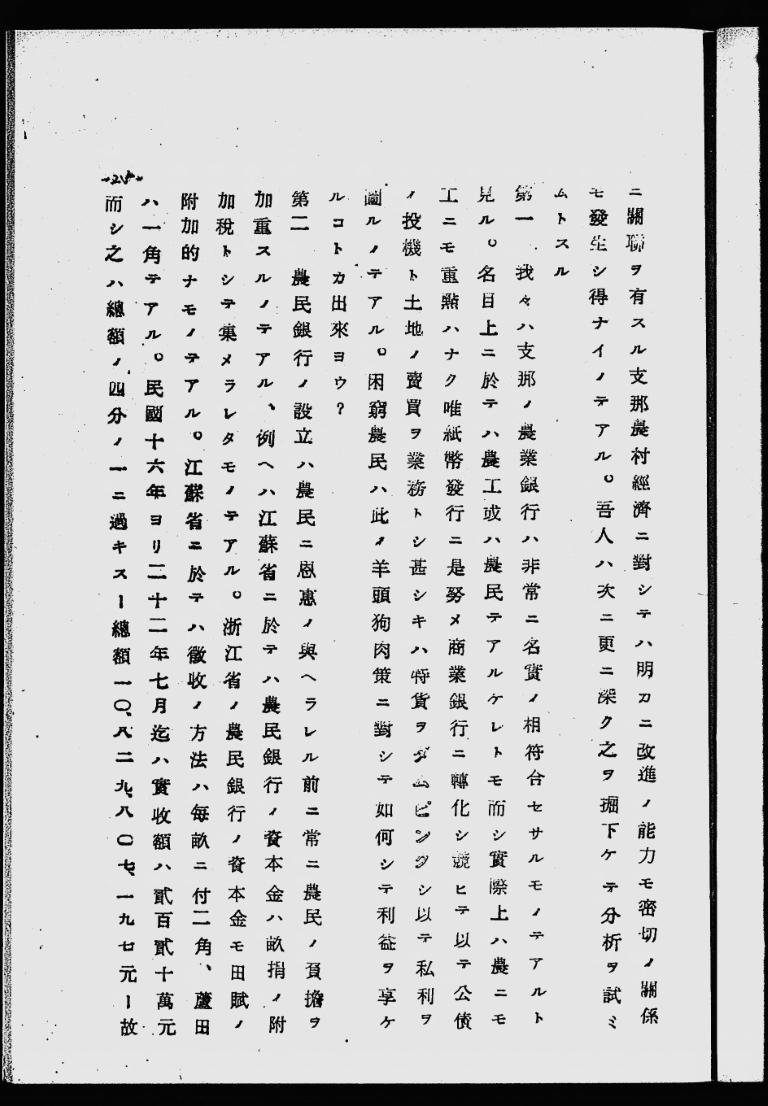 ニ關聯ヲ有スル支那農村經濟ニ對シテハ明カニ改進ノ能力モ密切ノ關係
モ發生シ得ナイノテアル。吾人ハ次ニ更ニ深ク之ヲ掘下ケテ分析ヲ試ミ
ムトスル
第一 我々ハ支那ノ農業銀行ハ非常ニ名實ノ相符合セサルモノテアルト
見ル。名目上ニ於テハ農工或ハ農民テアルケレトモ而シ實際上ハ農ニモ
工ニモ重點ハナク唯紙幣發行ニ是努メ商業銀行ニ轉化シ競ヒテ以テ公債
ノ投機ト土地ノ賣買ヲ業務トシ甚シキハ特貨ヲダムピングシ以テ私利ヲ
圖ルノテアル。困窮農民ハ此ノ羊頭狗肉策ニ對シテ如何シテ利益ヲ享ケ
ルコトカ出來ヨウ?
第二 農民銀行ノ設立ハ農民ニ恩惠ノ與ヘラレル前ニ常ニ農民ノ負擔ヲ
加重スルノテアル、例ヘハ江蘇省ニ於テハ農民銀行ノ資本金ハ畝捐ノ附
加稅トシテ集メラレタモノテアル。浙江省ノ農民銀行ノ資本金モ田賦ノ
附加的ナモノテアル。江蘇省ニ於テハ徵收ノ方法ハ每畝ニ付二角、蘆田
ハ一角テアル。民國十六年ヨリ二十二年七月迄ハ實收額ハ貳百貳十萬元
而シ之ハ總額ノ四分ノ一ニ過キスー總額一〇、八二九、八〇七、一九七元ー故